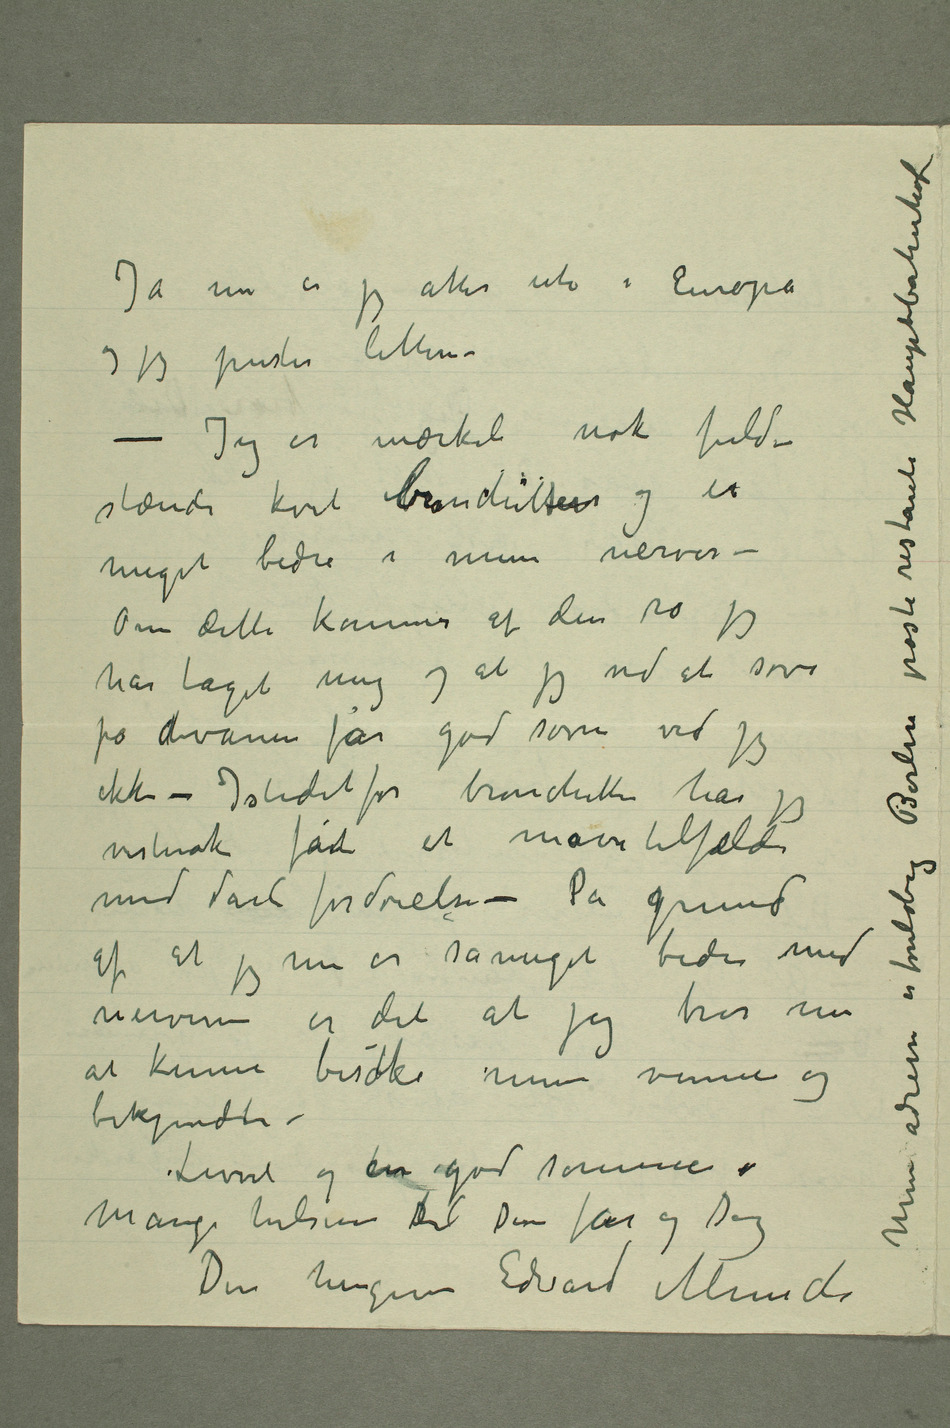 Ja nu er jeg atter ute i Europa
og jeg puster lettere –
— Jeg er mærkelig nok fuldstændig
stændi kvit bronchitten og er
meget bedre i mine nerver –
Om dette kommer af den ro jeg
har taget mig og at jeg ved at sove
på divanen får god søvn ved jeg
ikke – Istedetfor bronchitten har jeg
vistnok fåt et mavetilfælde
med dårli fordøielse – På grund
af at jeg nu er såmeget bedre med
nervene er det at jeg tror nu
at kunne besøke mine venner og
bekjendte –
Levvel og en god sommer
Mange hilsener til Din far og Dig
Din hengivne Edvard Munch
Min adresse er foreløbig Berlin poste restante Hauptbahnhof